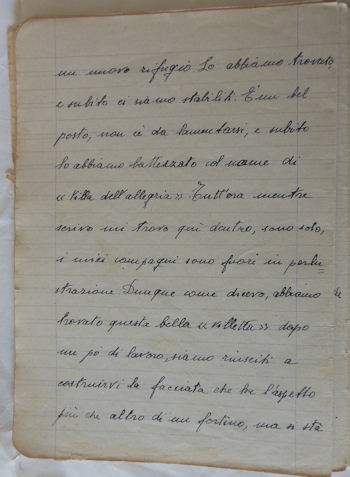 un nuovo rifugio Lo abbiamo trovato
e subito ci siamo stabiliti. È un bel
posto, non c'è da lamentarsi, e subito
lo abbiamo battezzato col nome di
« Villa dell'allegria » Tutt'ora mentre
scrivo mi trovo qui dentro, sono solo,
i miei compagni sono fuori in perlu=
strazione Dunque come dicevo, abbiamo
trovato questa bella « villetta » dopo
un pò di lavoro, siamo riusciti a
costruirvi la facciata che ha l'aspetto
più che altro di un fortino, ma si stà